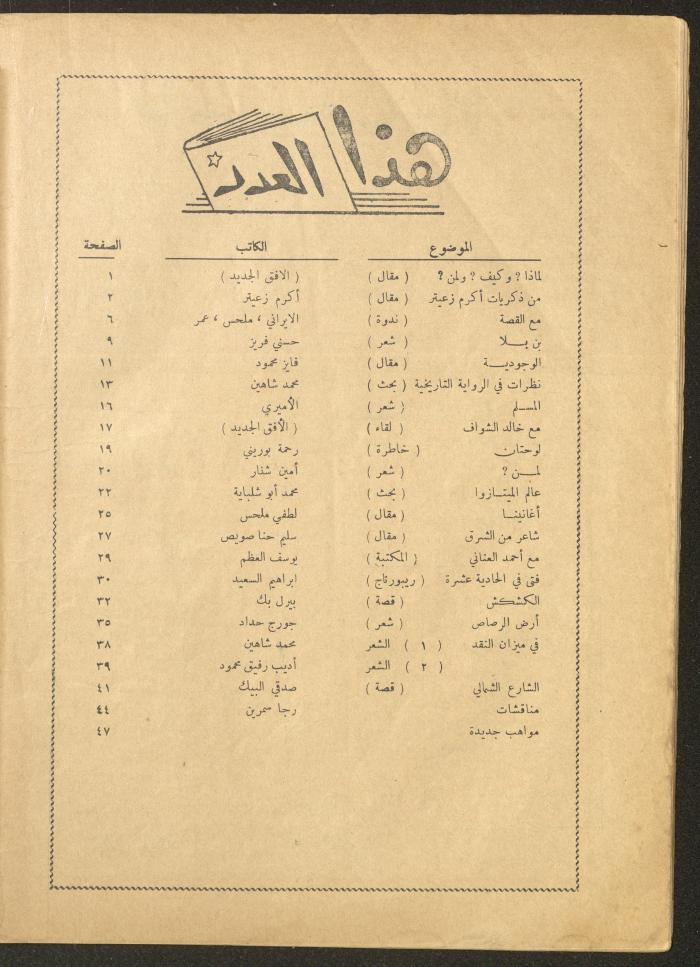 هذا العدد
الموضوع الكاتب الصفحة
لماذا ؟ وكيف ؟ ولمن ؟ ( مقال ) ( الافق الجديد ) ١
من ذكريات أكرم زعيتر ( مقال ) أكرم زعيتر ٢
مع القصة ( ندوة ) الايراني ، ملحس ، عمر ٦
بن يــلا ( شعر ) حسني فريز ٩
الوجوديــة ( مقال ) فايز محمود ١١
نظرات في الرواية التاريخية ( بحث ) محمد شاهين ١٣
المســلم ( شعر ) الأميري ١٦
مع خالد الشواف ( لقاء ) ( الأفق الجديد ) ١٧
لوحتان ( خاطرة ) رحمة بوريني ١٩
لمــن ؟ ( شعر ) أمين شنار ٢٠
عالم الميتــازوا ( بحث ) محمد أبو شلباية ٢٢
أغانينــا ( مقال ) لطفي ملحس ٢٥
شاعر من الشرق ( مقال ) سليم حنا صويص ٢٧
مع أحمد العناني ( المكتبة ) يوسف العظم ٢٩
فتى في الحادية عشرة ( ريبورتاج ) ابراهيم السعيد ٣٠
الكشكش ( قصة ) بيرل بك ٣٢
أرض الرصاص ( شعر ) جورج حداد ٣٥
في ميزان النقد ( ١ ) الشعر محمد شاهين ٣٨
( ٢ ) الشعر أديب رفيق محمود ٣٩
الشارع الشمالي ( قصة ) صدقي البيك ٤١
مناقشات رجا سمرين ٤٤
مواهب جديدة ٤٧